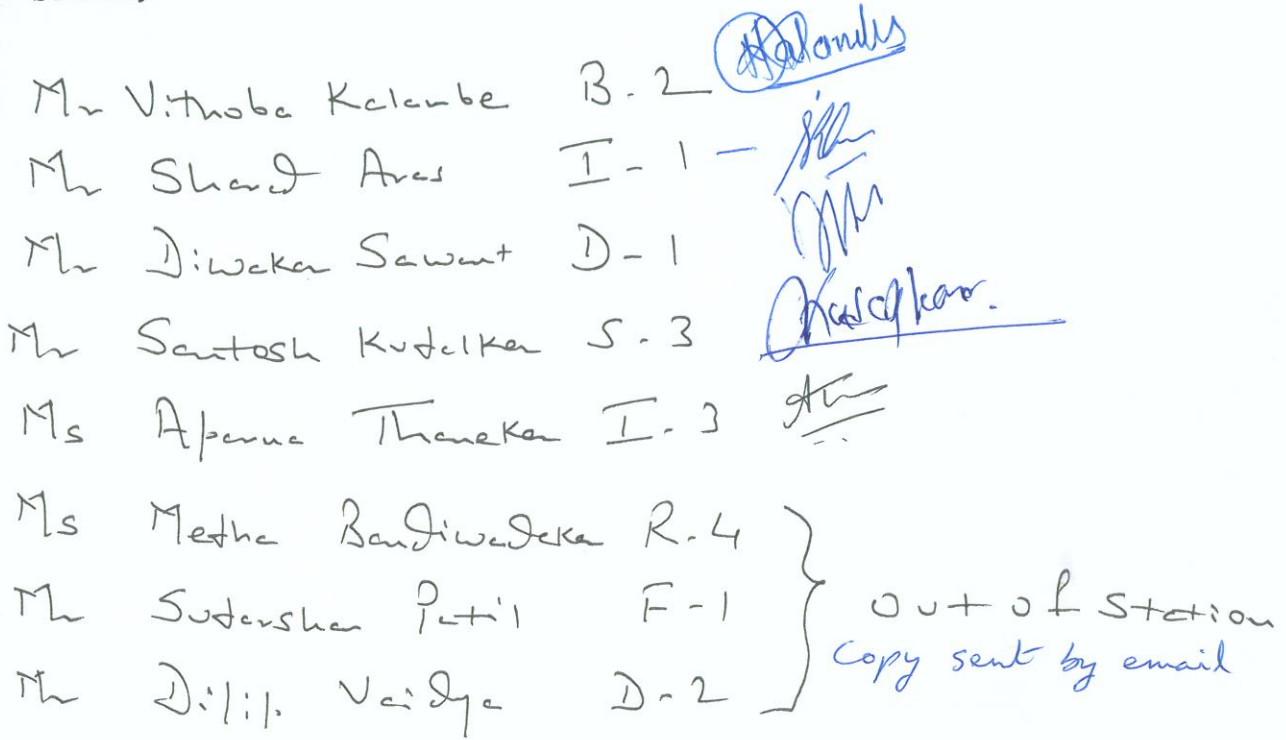 Mr Vithoba Kalambe B-2
Mr Sharad Aras I-1 -
Mr Diwakar Sawant D-1
Mr Santosh Kudalkar S-3
Ms Aparna Thanekar I-3
Ms Medha Bandiwadekar R-4
Mr Sudarshan Patil F-1
Mr Dilip Vaidya D-2
Out of Station
Copy sent by email